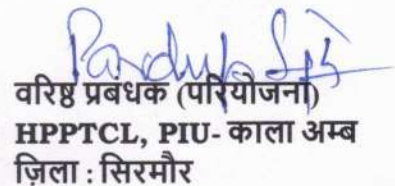 वरिष्ठ प्रबंधक (परियोजना)
HPPTCL, PIU- काला अम्ब
ज़िला : सिरमौर